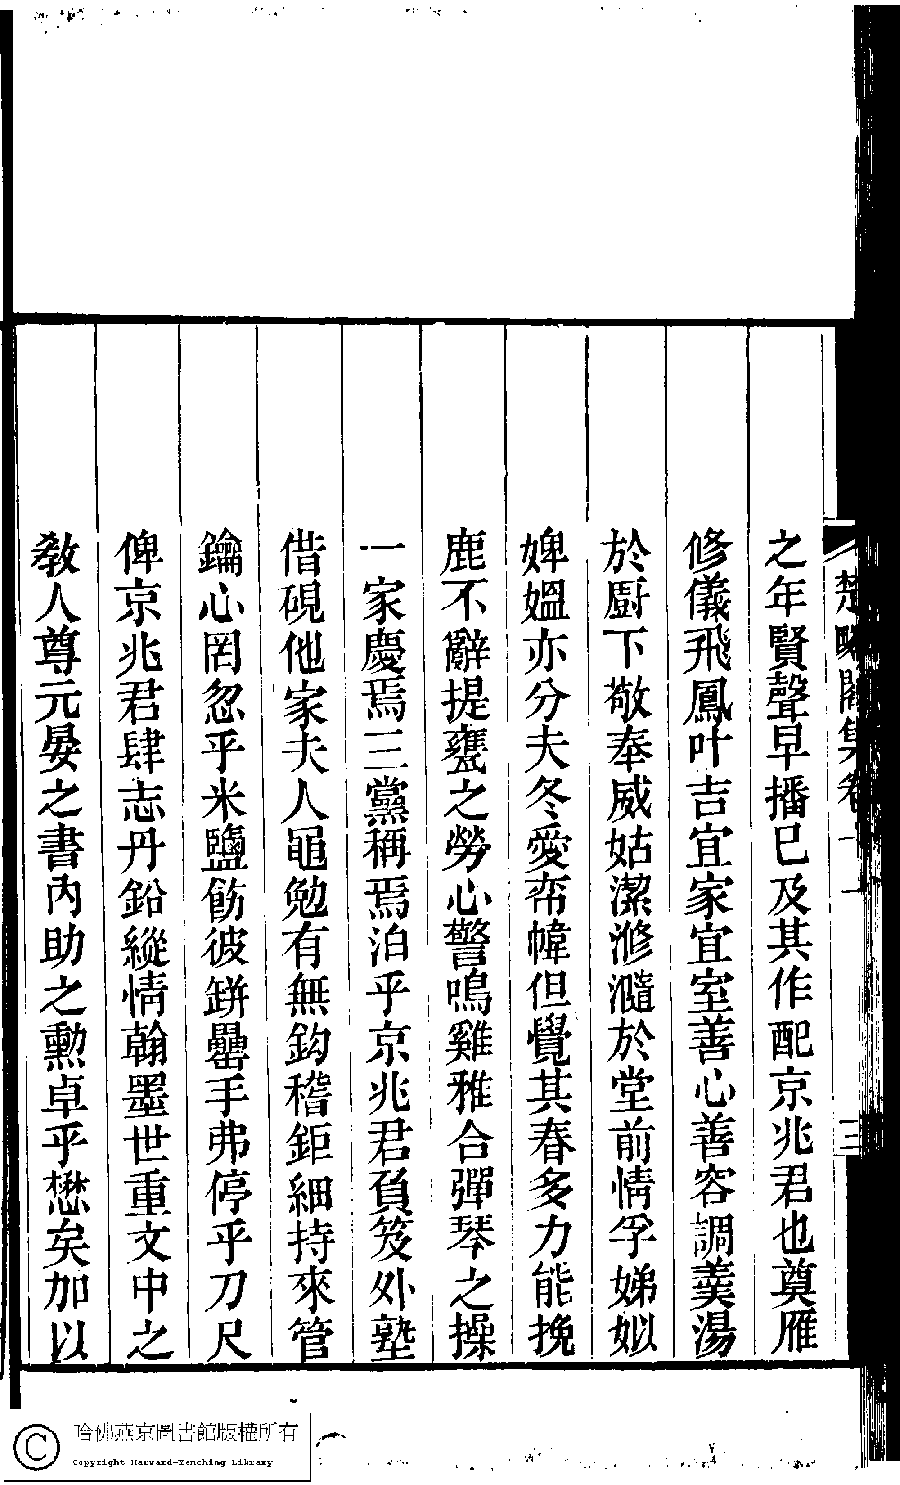 之年賢聲早播巳及其作配京兆君也奠雁
修儀飛鳳叶吉宜家宜室善心善容調羹湯
於厨下敬奉威姑潔滫瀡於堂前情孚娣姒
婢媼亦分夫冬愛帘幃但覺其春多力能挽
鹿不辭提甕之勞心警鳴雞雅合彈琴之操
一家慶焉三黨稱焉洎乎京兆君負笈外塾
借硯他家夫人黽勉有無鈎稽鉅細持來管
鑰心罔忽乎米鹽飭彼缾罍手弗停乎刀尺
俾京兆君肆志丹鉛縱情翰墨世重文中之
敎人尊元晏之書內助之勳卓乎懋矣加以
閣集卷
三
哈佛燕京圖書館版權所有
Copyright Harvard-Yenching Library